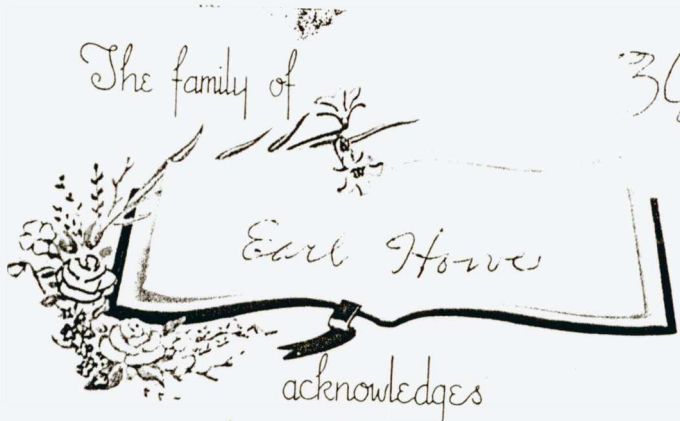 The family of
Earl Howe
acknowledges